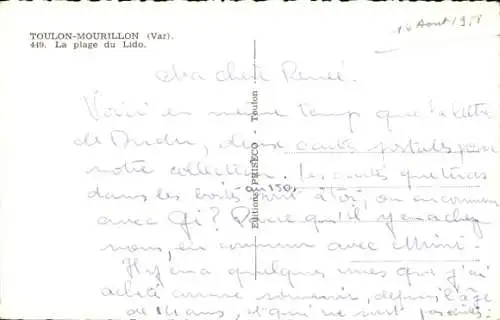 TOULON-MOURILLON (Var).
449. La plage du Lido.
Août 19
Editions PRISECO - Toulon
Ma chère Renée.
Voici en même temps que ta lettre
de Dudu, deux cartes postales pour
notre collection. Les cartes que tu as
dans les boîtes sont à toi, ou en commun
au 150,
avec Gi? Parce qu'il y en a chez
nous, en commun avec Mimi.
Il y en a quelques unes que j'ai
acheté comme souvenir, depuis l'âge
de 14 ans, et qui ne sont pas